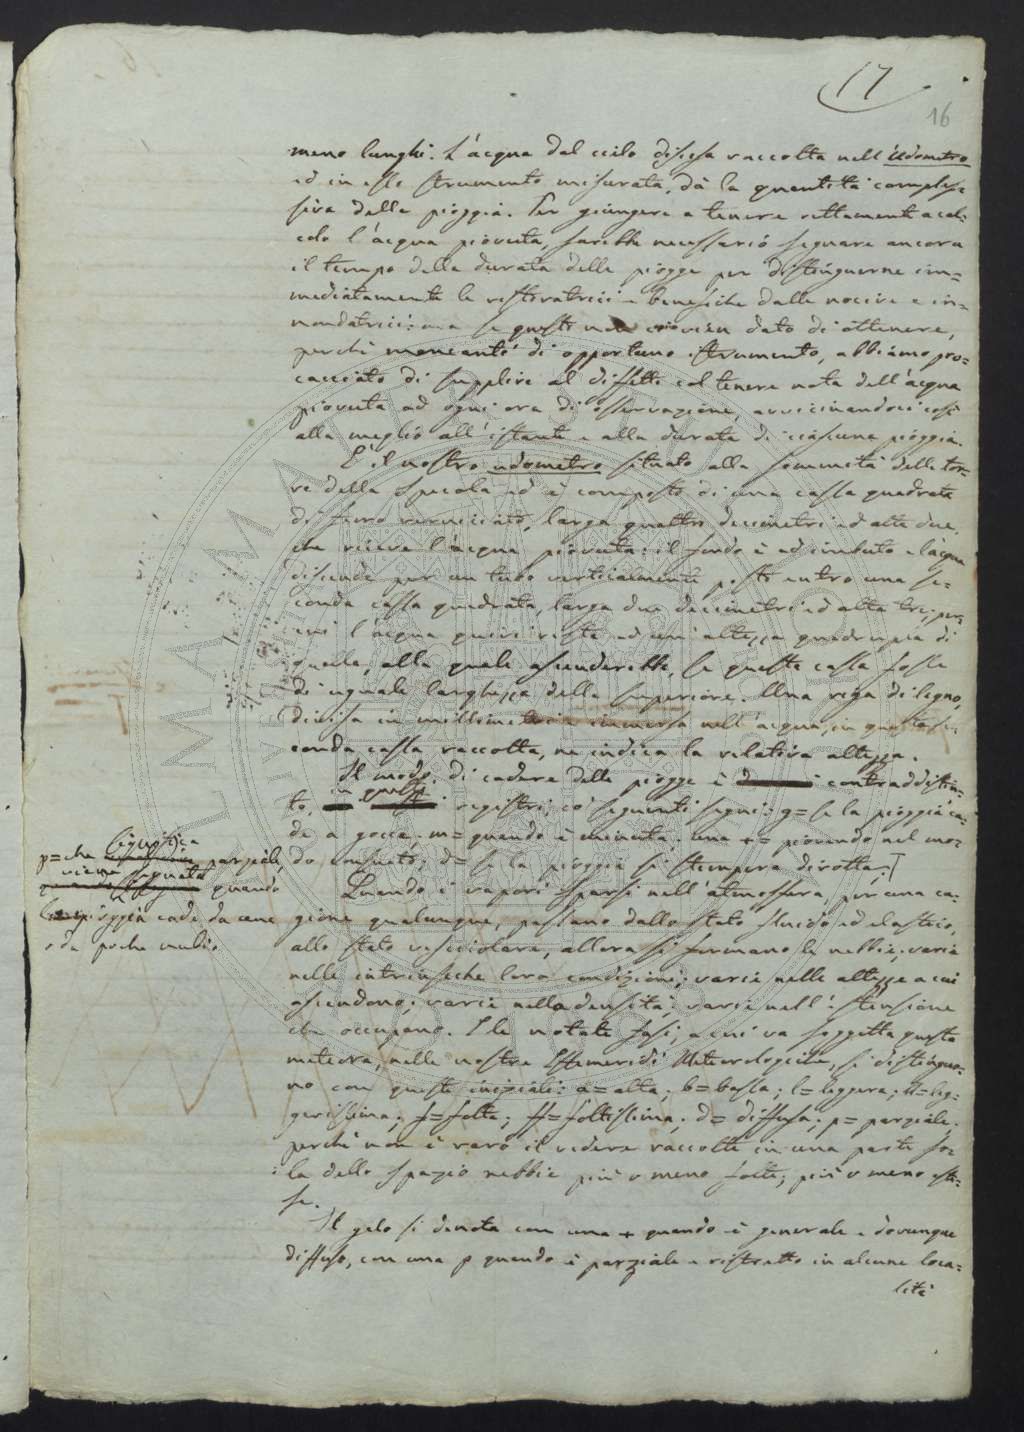 17
16
meno lunghi. L'acqua dal cielo discesa raccolta nell'Udometro
ed in esso strumento misurata, dà la quantità comples=
siva della pioggia. Per giungere a tenere rettamente a cal=
colo l'acqua piovuta, sarebbe necessario segnare ancora
il tempo della durata delle piogge per distinguerne im=
mediatamente le ristoratrici e benefiche dalle nocive e in=
nondatrici: ma se questo non ci vien dato di ottenere,
perchè mancanti di opportuno istrumento, abbiamo pro=
cacciato di supplire al difetto col tenere nota dell'acqua
piovuta ad ogni ora di osservazione, avvicinandoci così
alla meglio all'istante e alla durata di ciascuna pioggia.
È il nostro udometro situato alla sommità della tor=
re della Specola ed è composto di una cassa quadrata
di ferro verniciato, larga quattro decimetri ed alta due,
che riceve l'acqua piovuta: il fondo è ad imbuto e l'acqua
discende per un tubo verticalmente posto entro una se=
conda cassa quadrata, larga due decimetri ed alta tre; per
cui l'acqua quivi resta ad un'altezza quadrupla di
quella, alla quale ascenderebbe, se questa cassa fosse
di uguale larghezza della superiore. Una riga di legno,
divisa in millimetri e immersa nell'acqua, in questa se=
conda cassa raccolta, ne indica la relativa altezza.
Il modo di cadere delle piogge è contraddistin=
in questi
to, registri, co' seguenti segni: g= se la pioggia ca=
de a gocce; m= quando è minuta; una += piovendo nel mo=
do consueto; d= se la pioggia si stempera dirotta;
significa
p= che parziale,
viene segnata
quando
la pioggia cade da una
o da poche nubi
Quando i vapori sparsi nell'atmosfera, per una ca=
gione qualunque, passano dallo stato fluido ed elastico,
allo stato vescicolare, allora si formano le nebbie; varie
nelle intrinseche loro condizioni; varie nelle altezze a cui
ascendono; varie nella densità; varie nell'estensione
che occupano. E le notate fasi, a cui va soggetta questa
meteora, nelle nostre Effemeridi Meteorologiche, si distinguo=
no con queste iniziali: a= alta; b= bassa; l= leggera; ll= leg=
gerissima; f= folta; ff= foltissima; d= diffusa; p= parziale;
perchè non è raro il vedere raccolte in una parte so=
la dello spazio nebbie più o meno folte; più o meno este=
se.
Il gelo si denota con una + quando è generale e dovunque
diffuso, con una p quando è parziale e ristretto in alcune loca=
lità